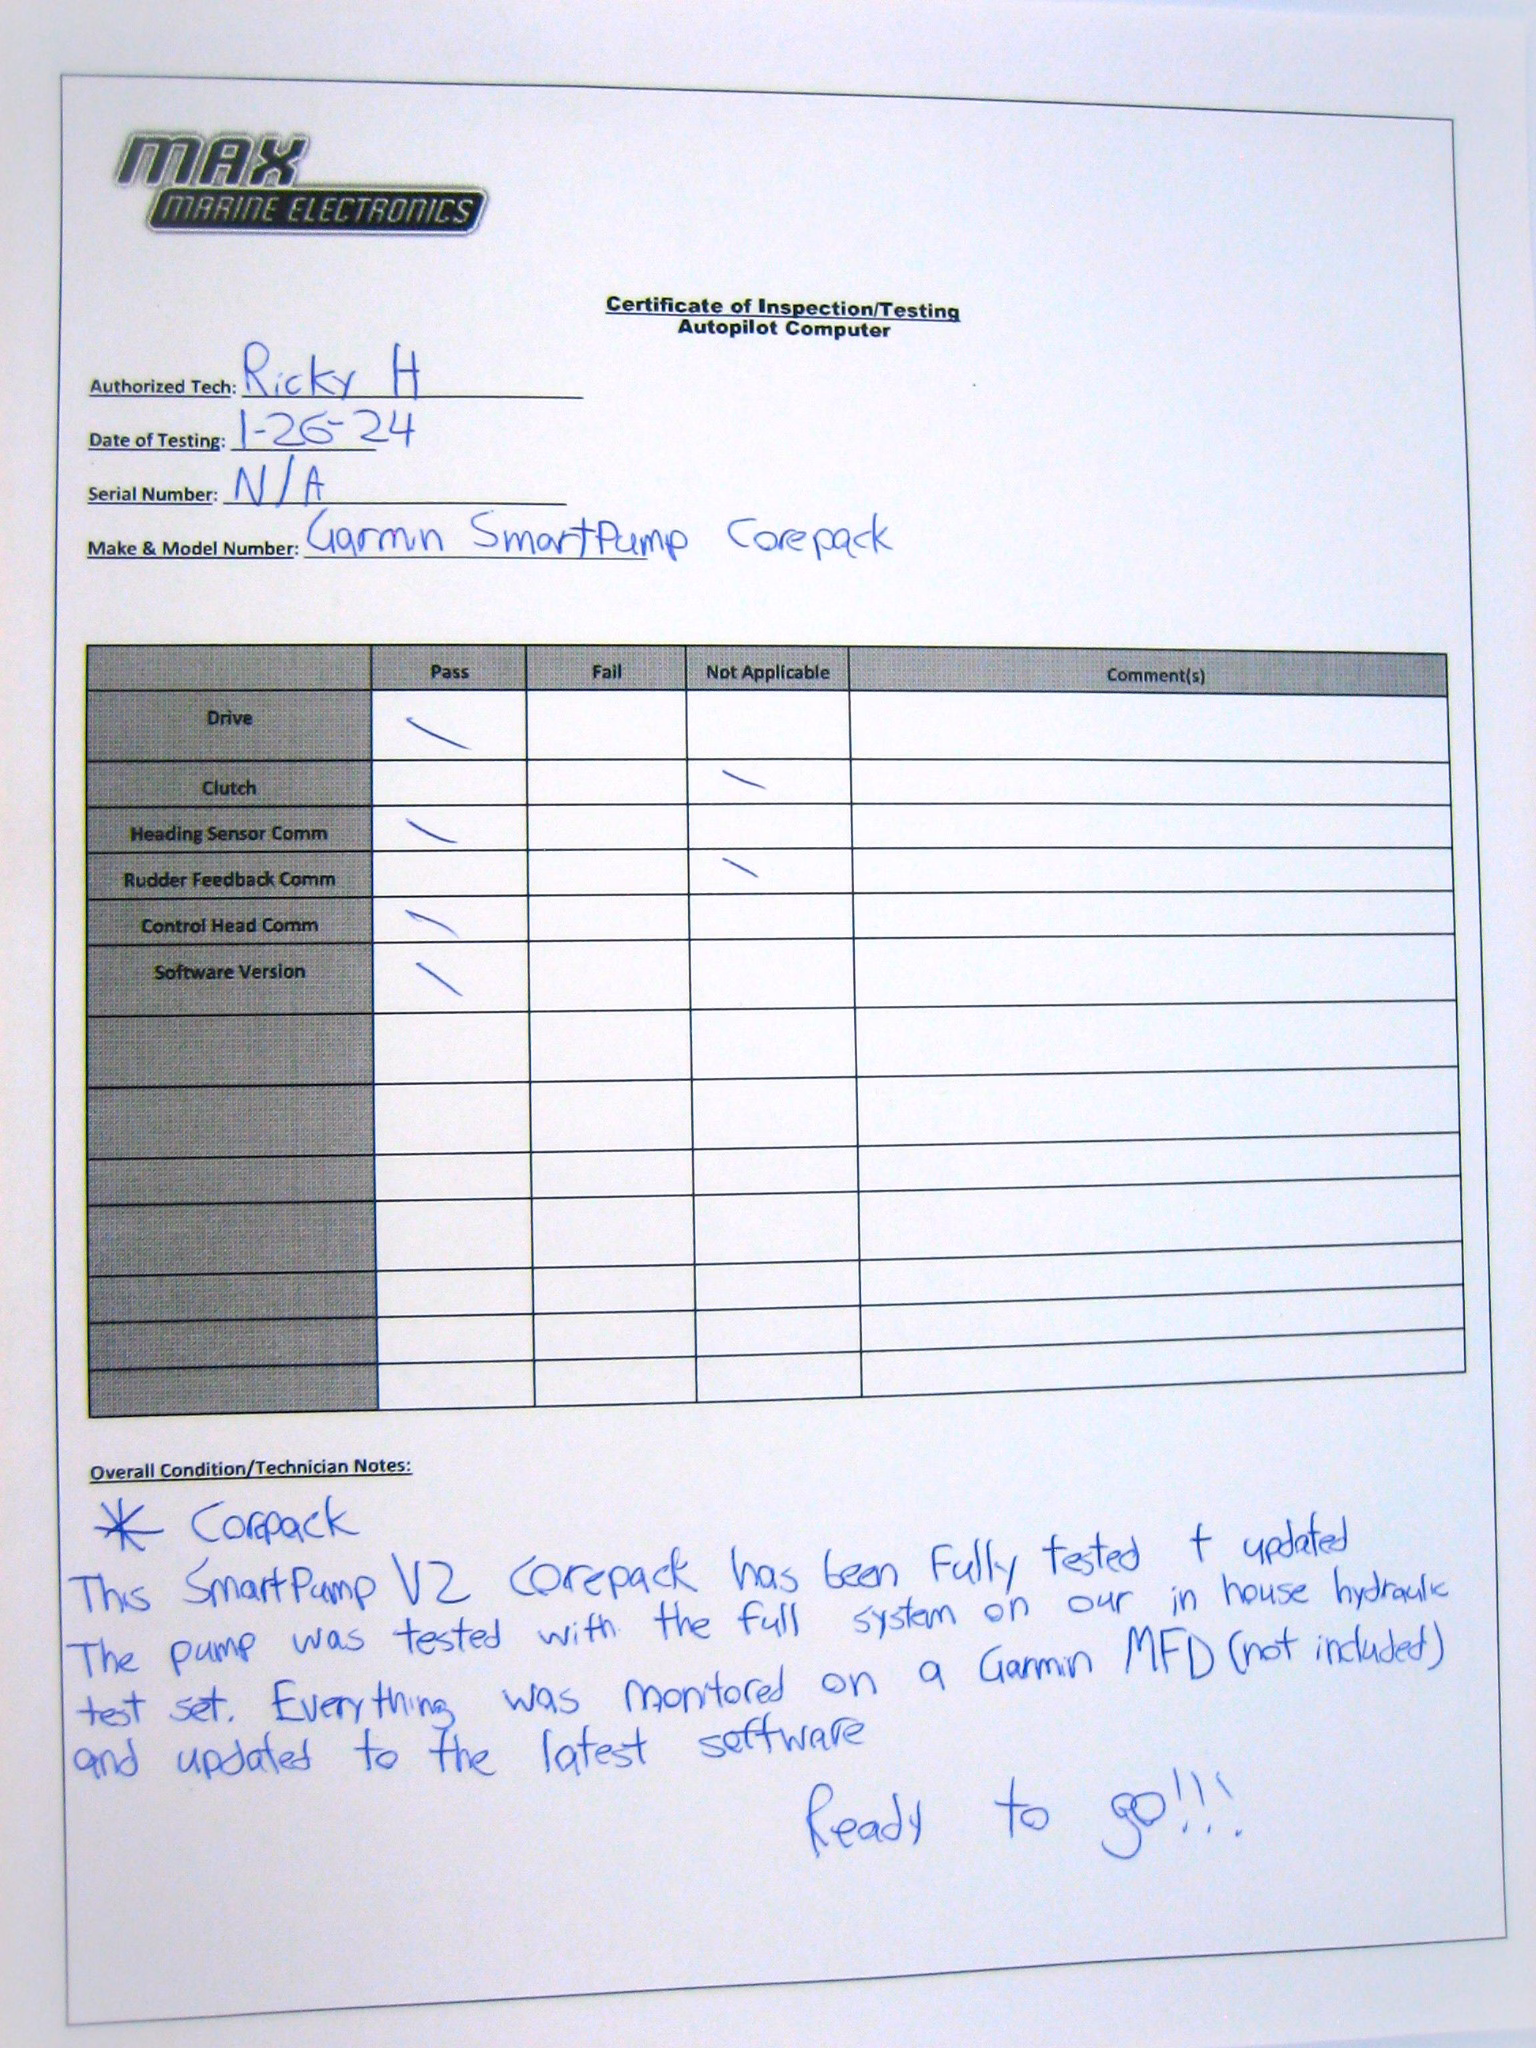 MAX
MARINE ELECTRONICS
Certificate of Inspection/Testing
Autopilot Computer
Authorized Tech: Ricky H
Date of Testing: 1-26-24
Serial Number: N/A
Make & Model Number: Garmin SmartPump Corepack
Pass Fail Not Applicable Comment(s)
Drive
Clutch
Heading Sensor Comm
Rudder Feedback Comm
Control Head Comm
Software Version
Overall Condition/Technician Notes:
* Corepack
This SmartPump V2 Corepack has been Fully tested + updated
The pump was tested with the full system on our in house hydraulic
test set. Everything was monitored on a Garmin MFD (not included)
and updated to the latest software
Ready to go!!!